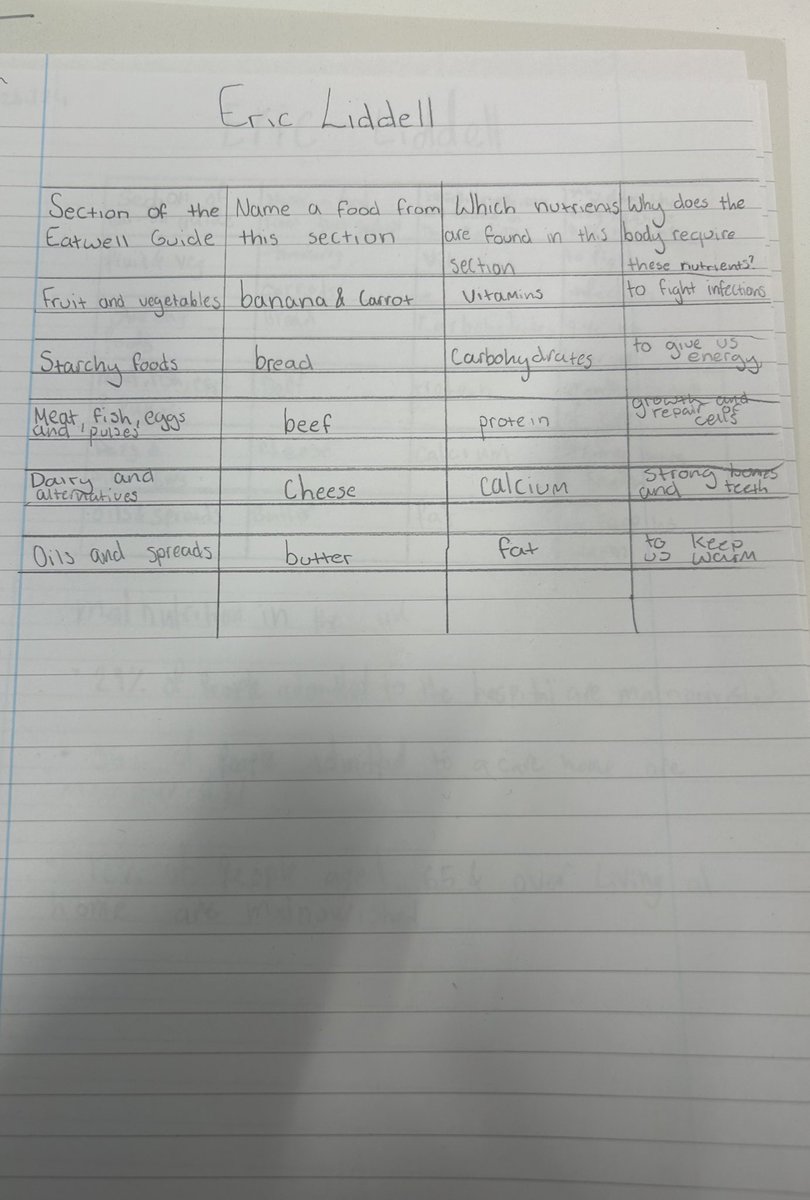 Eric Liddell
Section of the Name a food from Which nutrients Why does the
Eatwell Guide this section are found in this body require
section these nutrients?
Fruit and vegetables banana & Carrot Vitamins to fight infections
Starchy foods bread Carbohydrates to give us
energy
Meat, fish, eggs beef protein growth and
and pulses repair of
cells
Dairy and Cheese Calcium strong bones
alternatives and teeth
Oils and spreads butter fat to keep
us warm